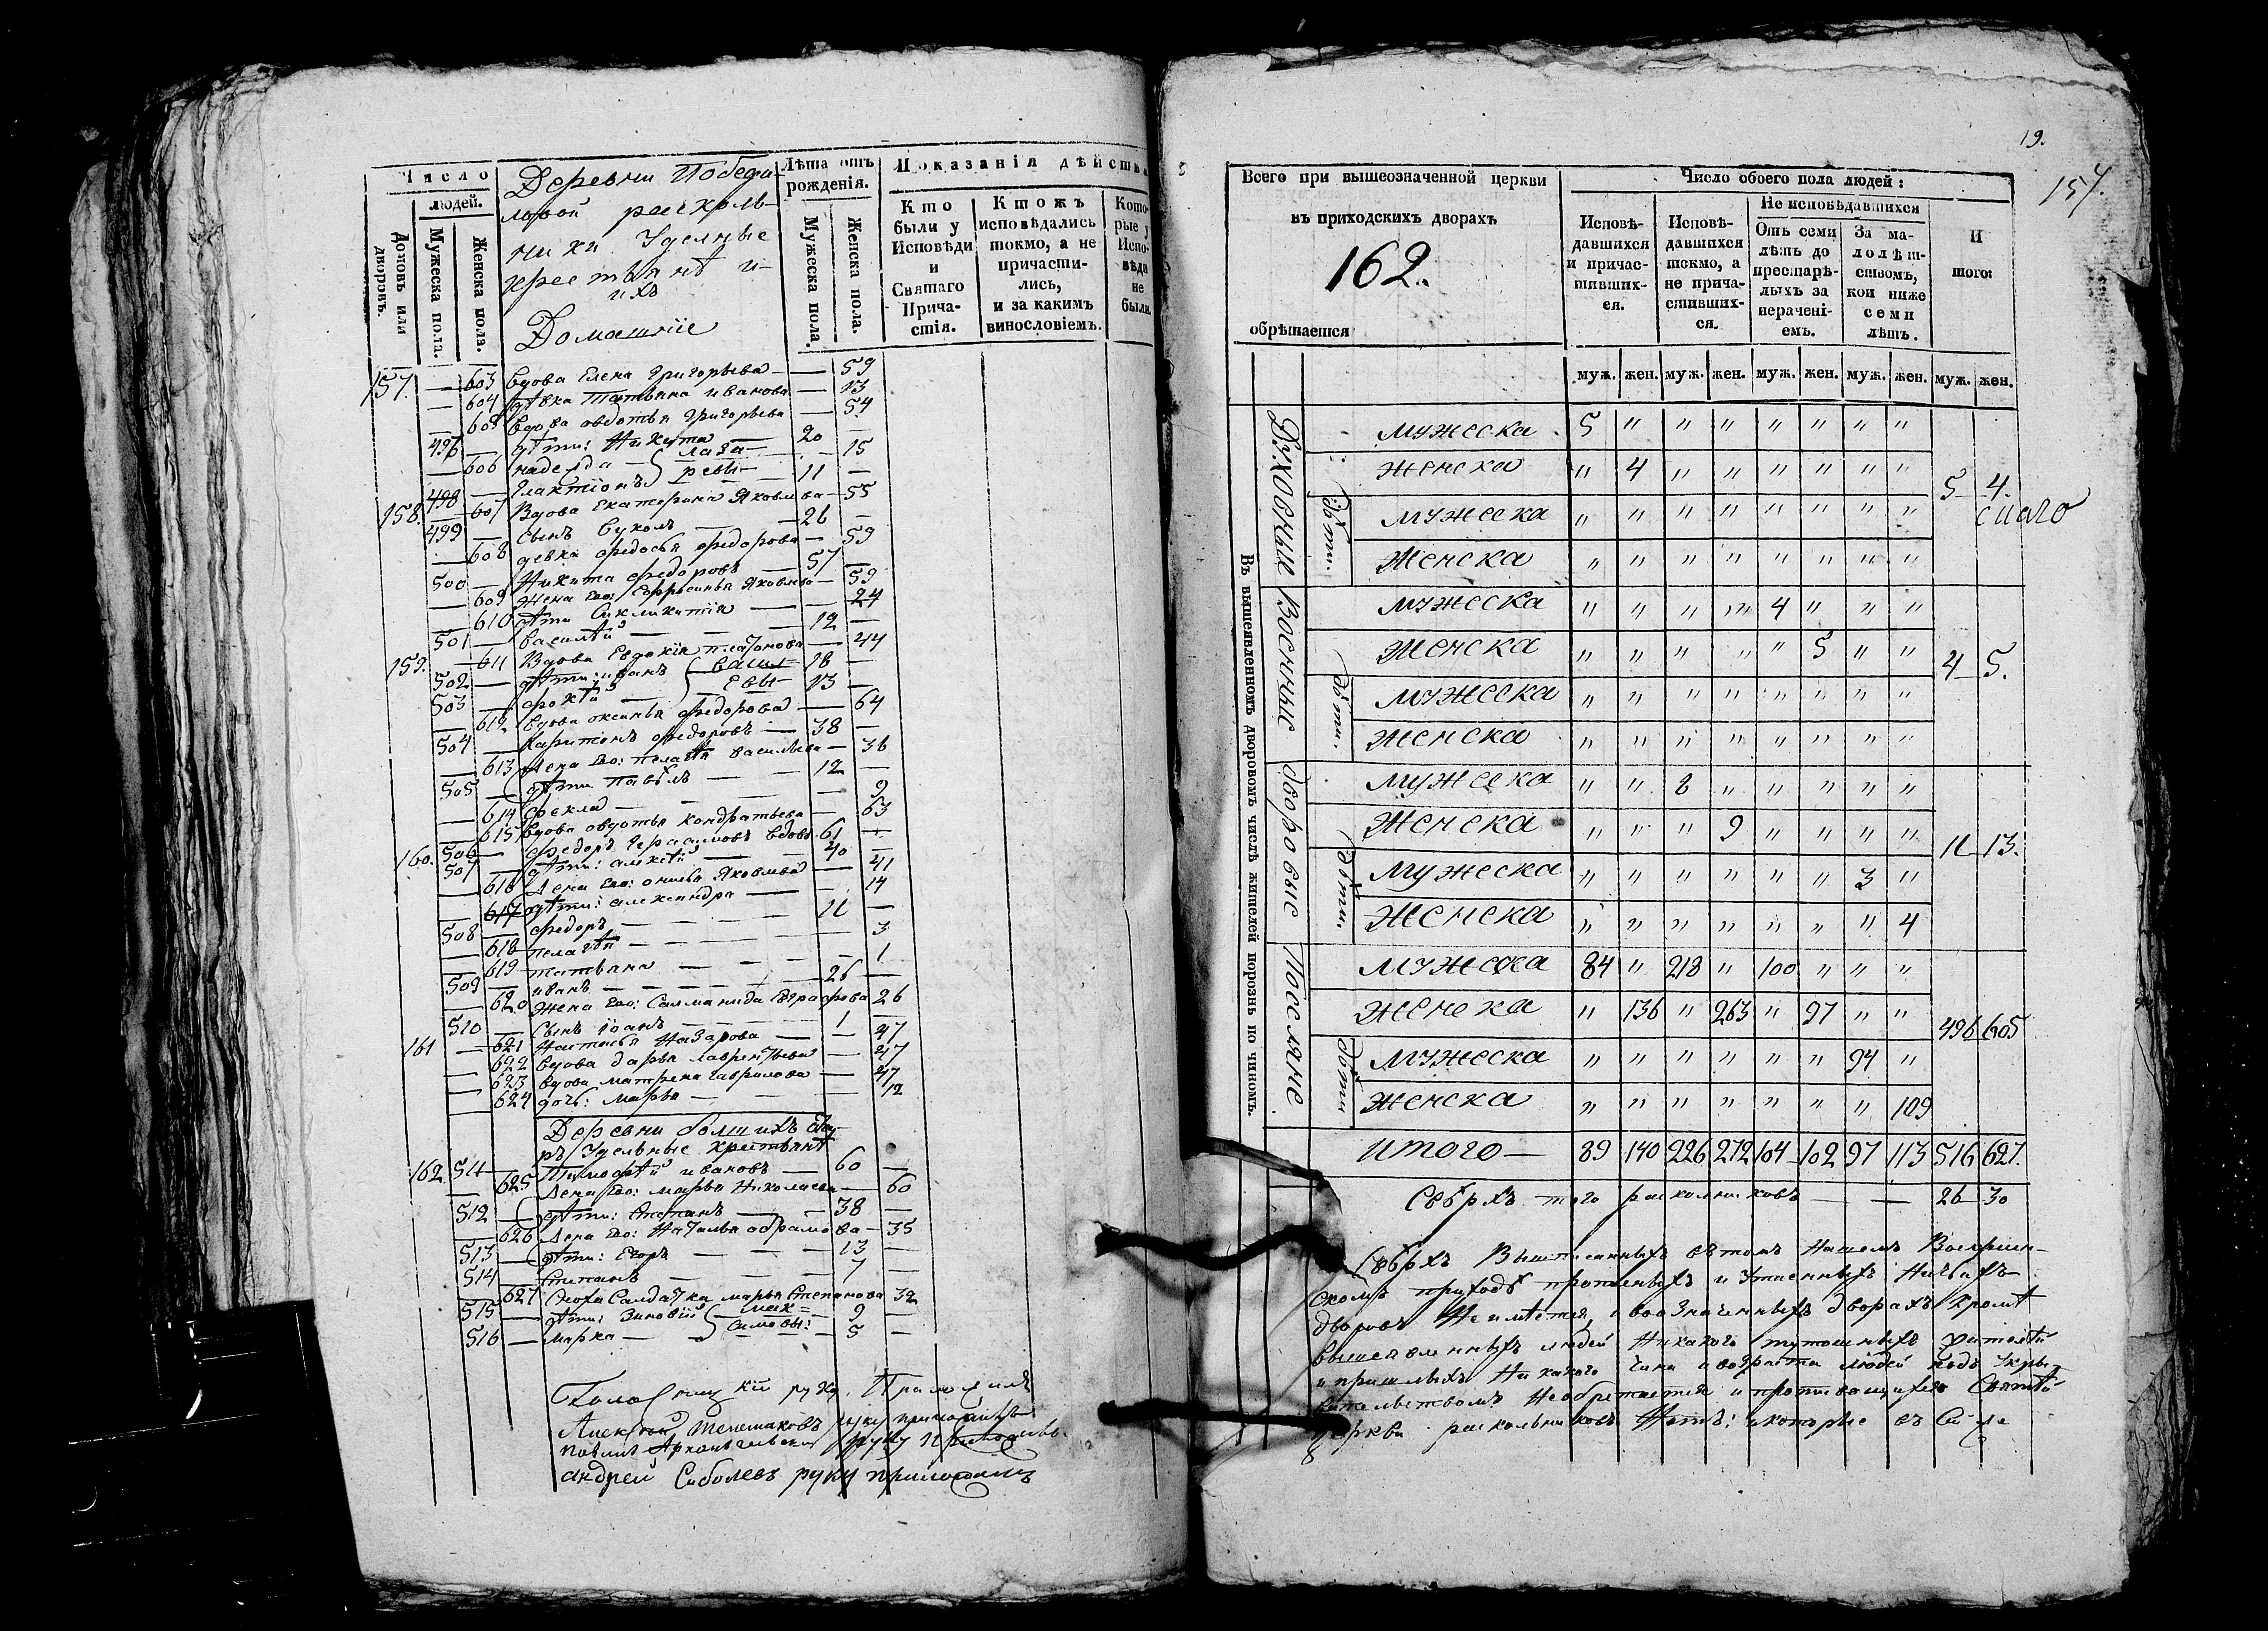 Число
людей.
Домовъ или дворовъ.
Мужеска пола.
Женска пола.
Деревни Победи-
ловой расколь-
ники Удельные
крестьянѣ и
ихъ
Домашніе
Лѣта отъ
рожденія.
Мужеска пола.
Женска пола.
Показанія дѣйств
Кто
были у
Исповѣди
и
Святаго
Прича-
стія.
Ктожъ
исповѣдались
токмо, а не
причасти-
лись,
и за какимъ
винословіемъ.
Кото-
рые у
Испо-
вѣди
не
были.
157. — 603 вдова Елена Григорьева — 59
— 604 дѣвка Татьяна иванова — 23
— 605 вдова овдотья Григорьева — 54
496 — дѣти: Никита — 20 —
— 606 надежда — — 15
498 — Галактіонъ — 11 —
158. — 607 Вдова Екатерина Яковлева — 55
499 — сынъ Вуколъ — 26 —
— 608 девка федосья федорова — 59
500 — Никита федоровъ — 57 —
— 609 Жена Его: Ефросинья Яковлева — 59
— 610 дѣти Сикликитія — 24
501 — василѣй — 12 —
159. — 611 Вдова Евдокія платонова — 44
502 — дѣти: иванъ — 18 —
503 — фокѣй — 13 —
— 612 вдова оксинья федорова — 64
504 — Харитонъ федоровъ — 38 —
— 613 Жена Его: пелагѣя васильева — 36
505 — дѣти павѣлъ — 12 —
— 614 фекла — 9
— 615 вдова овдотья кондратьева — 63
160. 506 — федоръ Герасимовъ вдовъ 61 —
507 — дѣти: алексѣй — 40 —
— 616 Жена Его: Яковлева — 41
— 617 дѣти: александра — 14
508 — федоръ — 11 —
— 618 пелагѣя — 3
— 619 татьяна — 1
509 — иванъ — 26 —
— 620 Жена Его: Саламанида Евграфова 26
510 — сынъ іоанъ — 1 —
161 — 621 Настасья Назарова — 47
— 622 вдова дарья лаврентьева — 47
— 623 вдова матрена гаврилова — 47
— 624 дочь: Марья — 12
Деревни
Удельные крестьянѣ
162. 511 — Тимофѣй ивановъ — 60 —
— 625 Жена Его: марья Николаева — 60
512 — дѣти: Степанъ — 38 —
— 626 Жена Его: Наталья абрамова — 35
513 — дѣти: Егоръ — 13 —
514 — Степанъ — 7 —
— 627 Сноха Салдатка марья Степанова 32
515 — дѣти: Зиновій — 9 —
516 — марка — 5 —
Алексѣй руку приложилъ
павелъ Архангельскій руку приложилъ
андрей Соболевъ руку приложилъ
19.
154.
Всего при вышеозначенной церкви
въ приходскихъ дворахъ
162.
обрѣтается
Число обоего пола людей:
Исповѣ-
давшихся
и причас-
тивших-
ся.
Исповѣ-
давшихся
токмо, а
не прича-
стивших-
ся.
Не исповѣдавшихся
Отъ семи
лѣтъ до
престарѣ-
лыхъ за
нераченi-
емъ.
За ма-
лолѣт-
ствомъ,
кои ниже
семи
лѣтъ.
И
того:
муж. жен. муж. жен. муж. жен. муж. жен. муж. жен.
Въ вышеявленномъ дворовомъ числѣ жителей порознь по чиномъ.
Духовные
Мужеска 5 " " " " " " "
Женска " 4 " " " " " "
5 4.
дѣти.
Мужеска " " " " " " " "
Женска " " " " " " " "
Военные
Мужеска " " " " 4 " " "
Женска " " " " " 5 " "
4 5.
дѣти.
Мужеска " " " " " " " "
Женска " " " " " " " "
дворовые
Мужеска " " 8 " " " " "
Женска " " " 9 " " " "
11 13.
дѣти.
Мужеска " " " " " " 3 "
Женска " " " " " " " 4
Посяляне
Мужеска 84 " 218 " 100 " " "
Женска " 136 " 263 " 97 " "
496 605
дѣти
Мужеска " " " " " " 94 "
Женска " " " " " " " 109
Итого — 89 140 226 272 104 102 97 113 516 627.
Свѣрхъ того раскольниковъ — — 26 30
Свѣрхъ Выписанныхъ вѣтомъ Нашемъ
скомъ приходѣ и Утаенныхъ Ничьихъ
дворовъ Не имѣется, а воозначенныхъ дворахъ Кромѣ
вышеявленныхъ людей Никакихъ жителѣй
и пришлыхъ Никакого Чина и возраста людей подъ Укры-
вательствомъ Необретается и противящихся Святѣй
церкви раскольниковъ Нетъ: и которые въ Сей